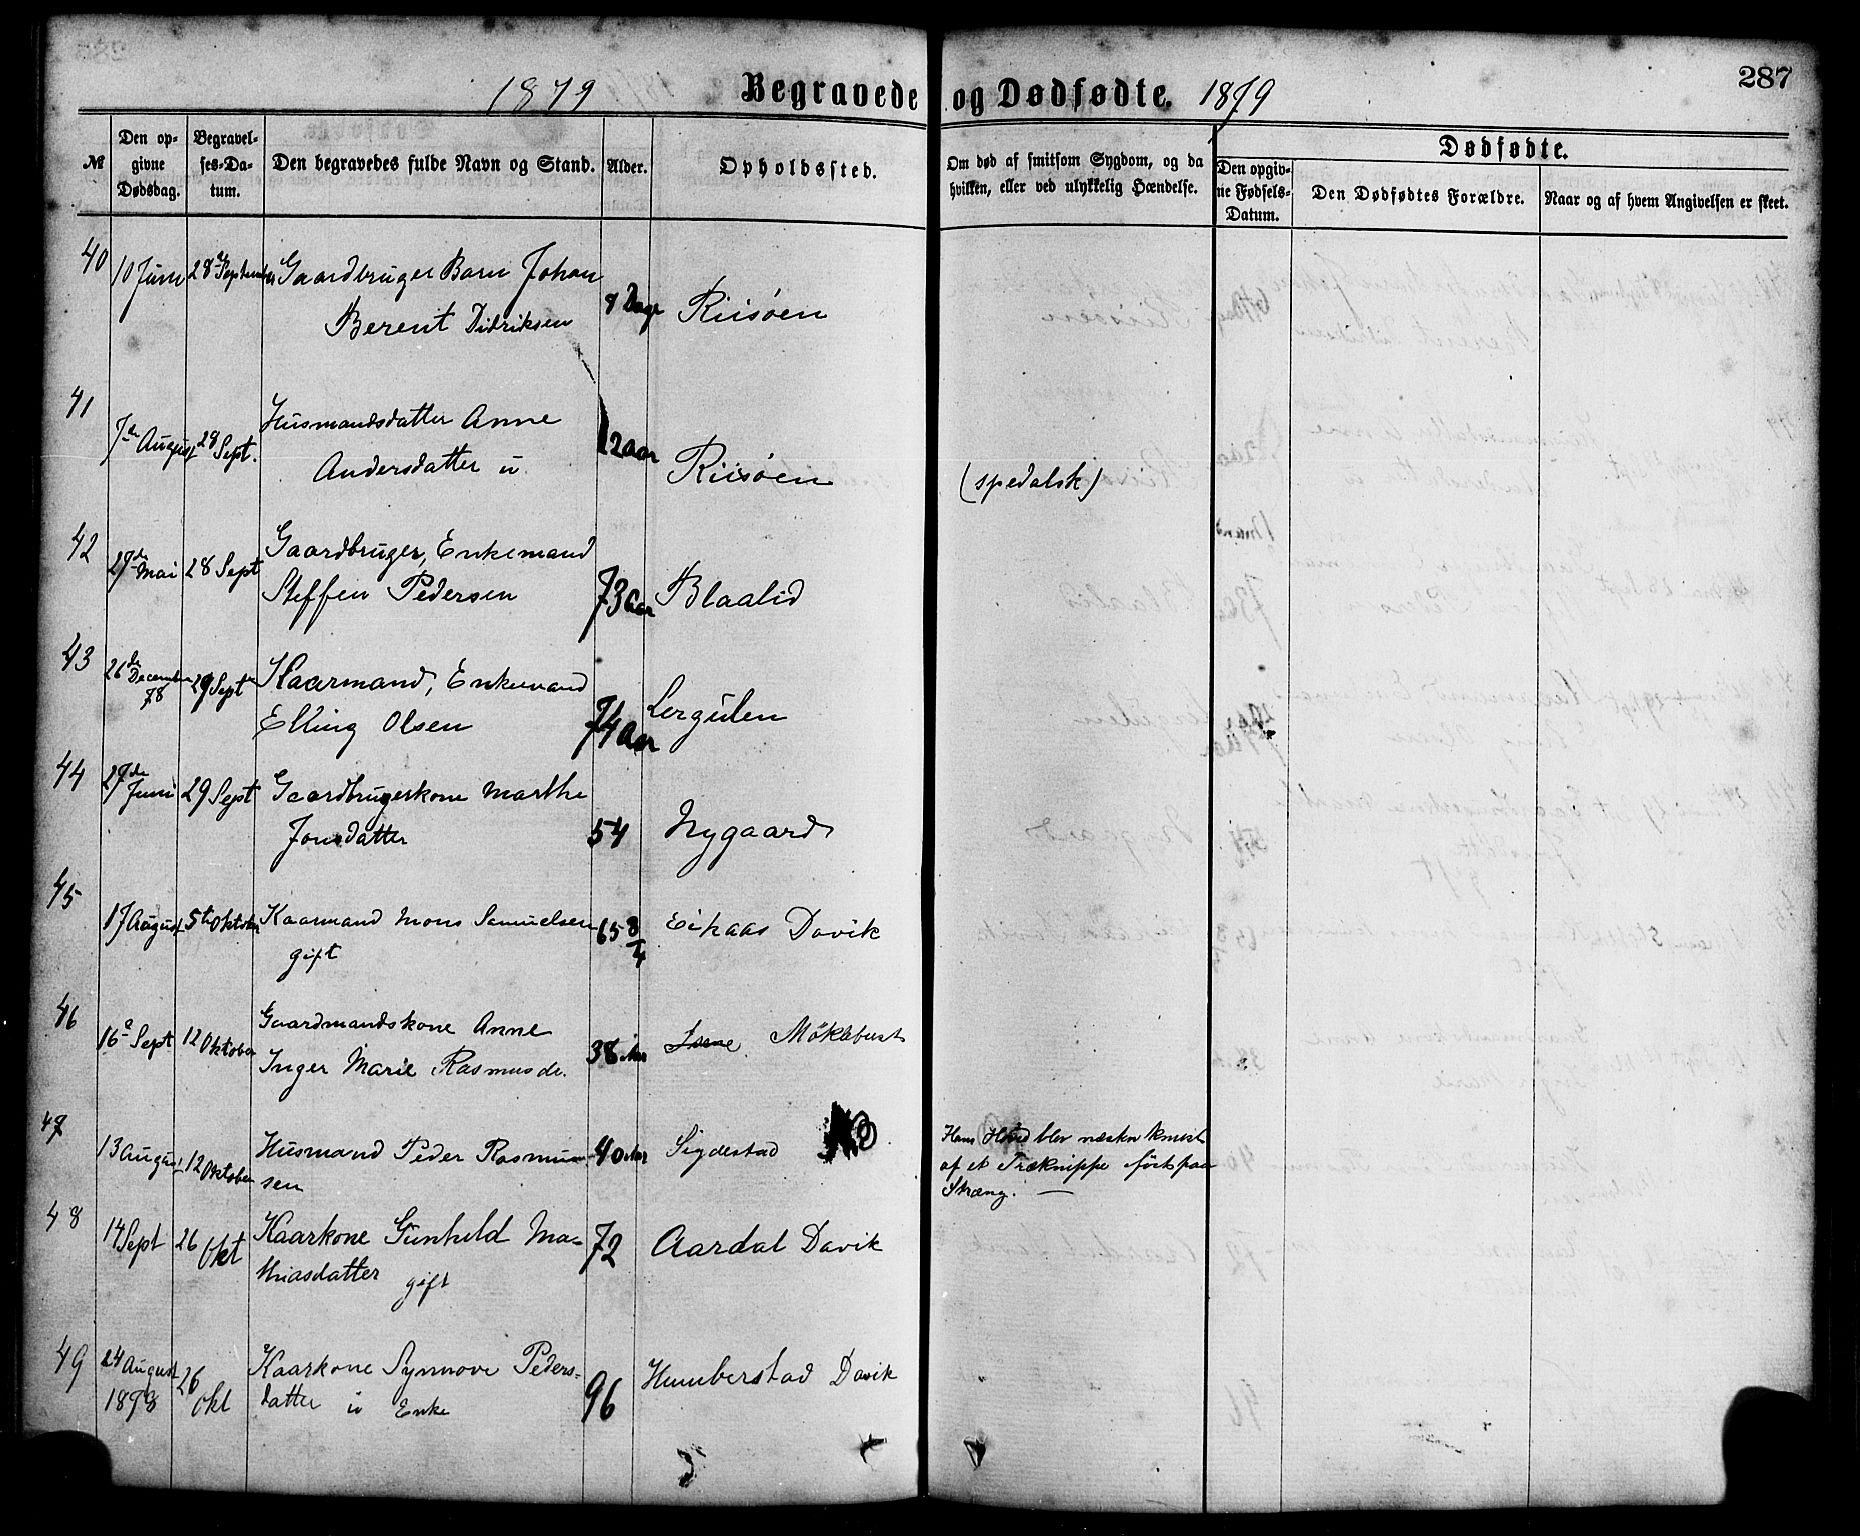 287
1879 Begravede og Dødfødte. 1879
№
Den op-
givne
Dødsdag.
Begravel-
ses-Da-
tum.
Den begravedes fulde Navn og Stand.
Alder.
Opholdssted.
Om død af smitsom Sygdom, og da
hvilken, eller ved ulykkelig Hændelse.
Dødfødte.
Den opgiv-
ne Fødsels-
Datum.
Den Dødfødtes Forældre.
Naar og af hvem Angivelsen er skeet.
40 10 Juni 28 September Gaardbruger Barn Johan
Berent Didriksen Dage Riisøen
41 7de August 28 Sept. Husmandsdatter Anne
Andersdatter u. 12 aar Riisøen (spedalsk)
42 27de Mai 28 Sept Gaardbruger, Enkemand
Steffen Pedersen 73 aar Blaalid
43 26de December 78 29 Sept Kaarmand, Enkemand
Elling Olsen 74 aar Lergulen
44 27de Juni 29 Sept Gaardbrugerkone Marthe
Jonsdatter 54 Nygaard
45 17 August 5te Oktober Kaarmand Mons Samuelsen
gift 65 3/4 Eikaas Davik
46 16de Sept 12 Oktober Gaardmandskone Anne
Inger Marie Rasmusde. 38 Aar Møklebust
47 13 August 12 Oktober Husmand Peder Rasmus-
sen 40 Aar Sigdestad
Hans Hoved blev næsten knust
af et Træknippe ført paa
Stræng.
48 14 Sept 26 Okt Kaarkone Gunhild Ma-
thiasdatter gift 72 Aardal Davik
49 24 August 1878 26 Okt Kaarkone Synnove Peders-
datter u Enke 96 Humberstad Davik